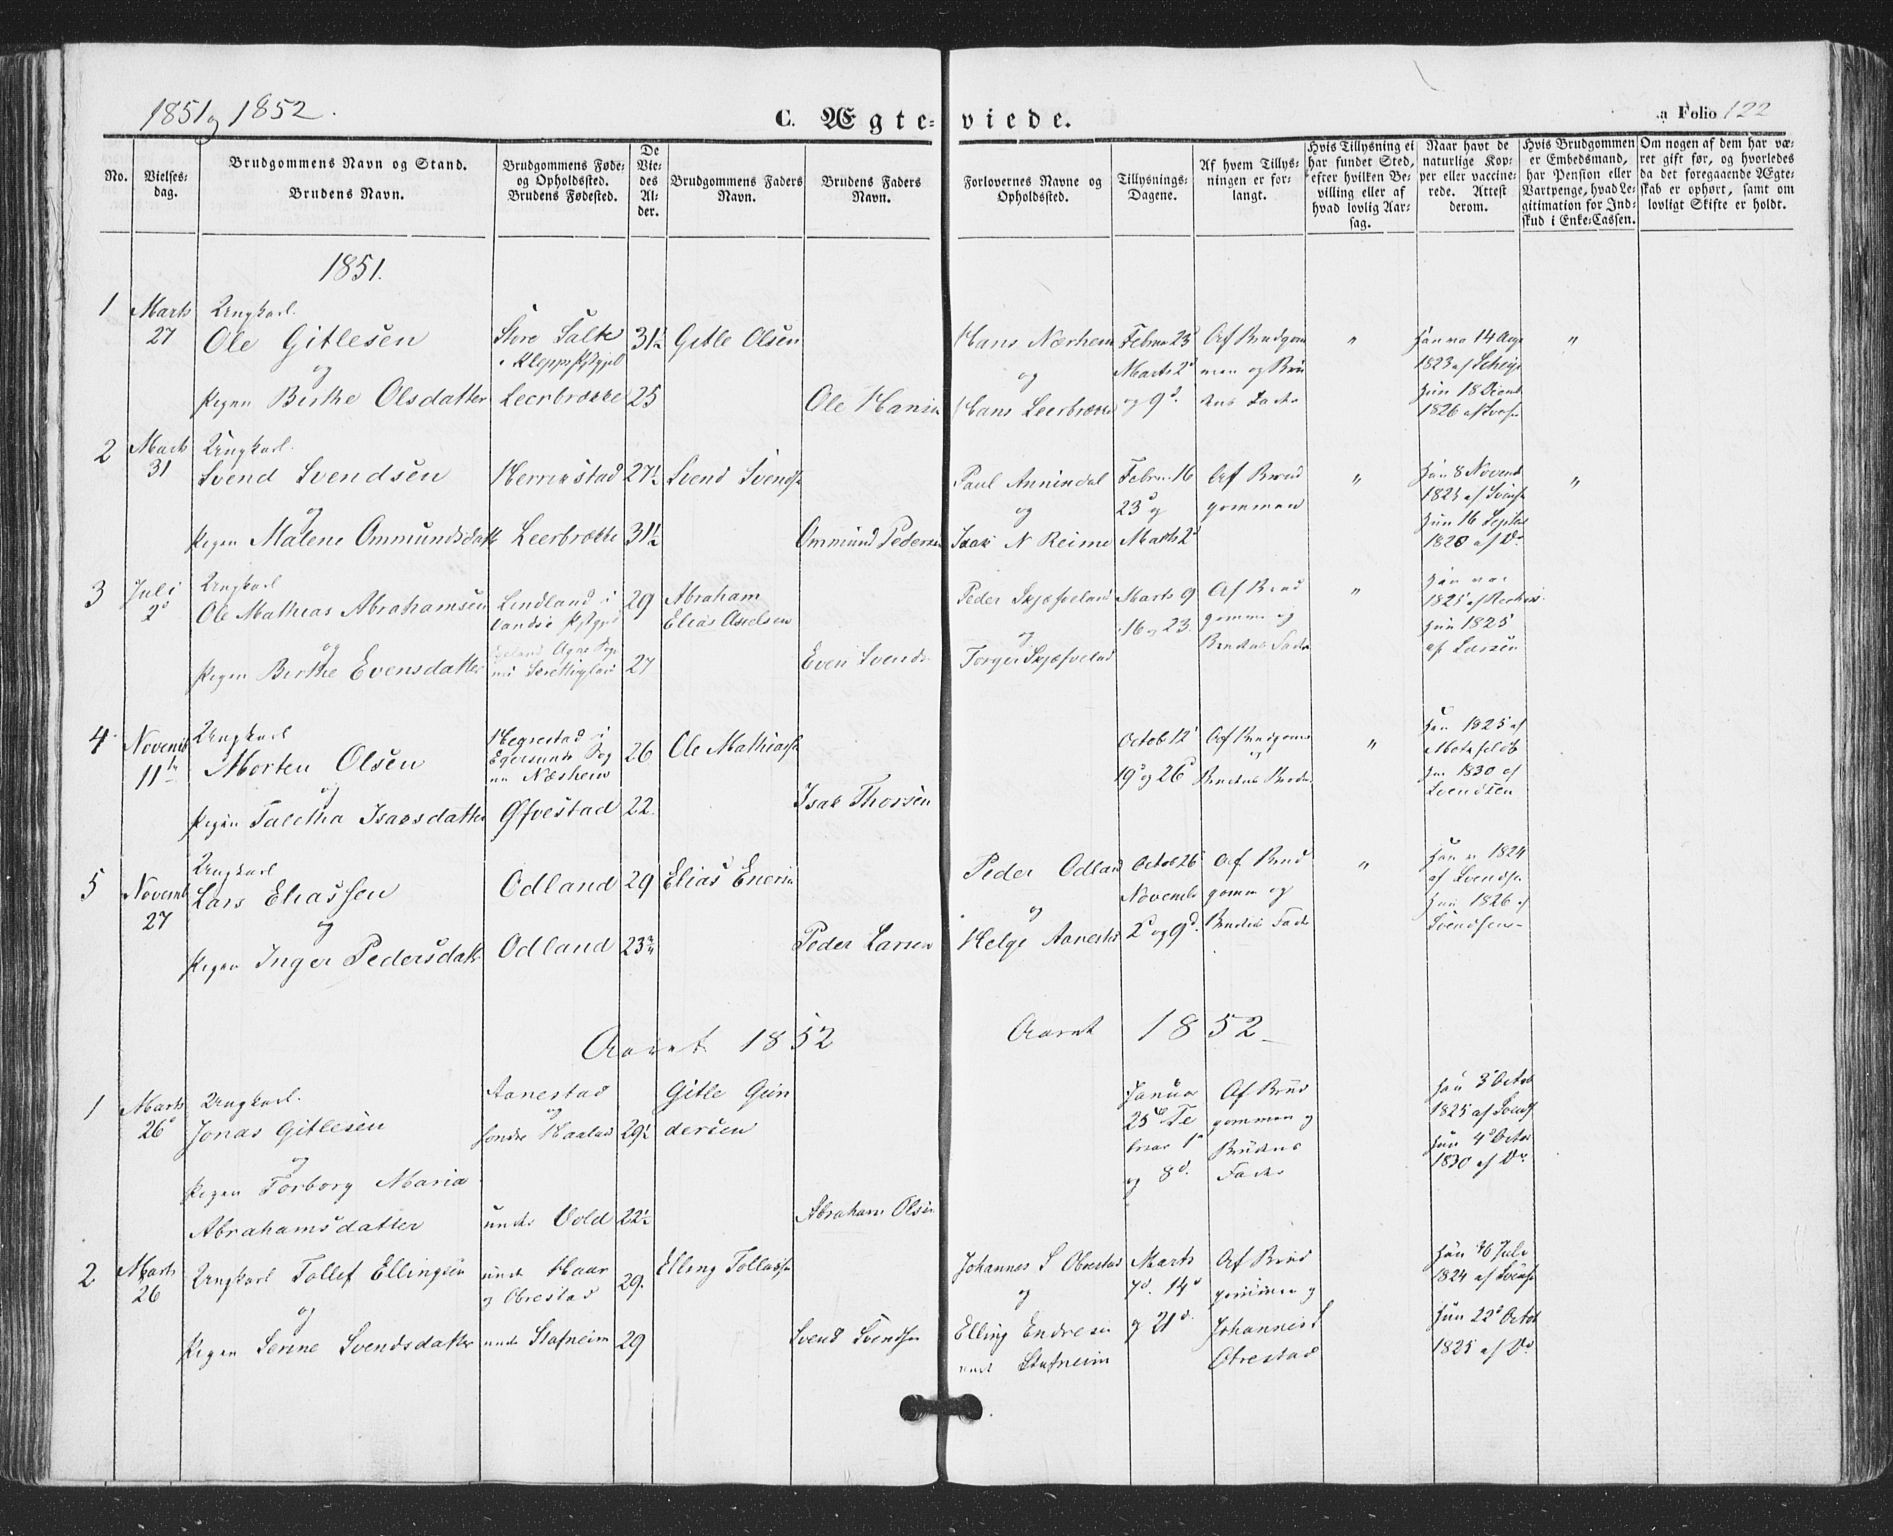 1851 og 1852.
C. Ægte=viede.
a Folio 122
No.
Vielses=
dag.
Brudgommens Navn og Stand.
Brudens Navn.
Brudgommens Føde=
og Opholdssted.
Brudens Fødested.
De
Vie=
des
Al=
der.
Brudgommens Faders
Navn.
Brudens Faders
Navn.
Forlovernes Navne og
Opholdssted.
Tillysnings=
Dagene.
Af hvem Tillys=
ningen er for=
langt.
Hvis Tillysning ei
har fundet Sted,
efter hvilken Be=
villing eller af
hvad lovlig Aar=
sag.
Naar havt de
naturlige Kop=
per eller vaccine=
rede. Attest
derom.
Hvis Brudgommen
er Embedsmand,
har Pension eller
Vartpenge, hvad Le=
gitimation for Ind=
skud i Enke=Cassen.
Om nogen af dem har væ=
ret gift før, og hvorledes
da det foregaaende Ægte=
skab er ophørt, samt om
lovligt Skifte er holdt.
1851.
1 Marts 27
Ungkarl
Ole Gitlesen
og
Pigen Birthe Olsdatter
Store Salte
Leerbrække
31½
25
Gitle Olsen
Ole Hansen
Hans Nærheim
og
Hans Leerbrække
Februar 23
Marts 2
og 9d.
Af Brudgom
men og Bru
dens Fader
"
14 Aug
1823 af
Hun 18
1826 af
"
2 Marts 31
Ungkarl
Svend Svendsen
og
Pigen Malene Ommundsdatt
Herrikstad
Leerbrække
27½
31½
Svend Svends
Ommund Pedersen
Paul Annindal
og
Isak N Reime
Febru. 16
23 og
Marts 2
Af Brud
gommen
"
Han 8 Novemb
1825 af Svends
Hun 16 Septbr
1820 af Do
"
3 Juli 2
Ungkarl
Ole Mathias Abrahamsen
og
Pigen Birthe Evensdatter
Lindland i
29
27
Abraham
Elias Axelsen
Even Svends
Peder Skjæfveland
og
Torger Skjæfveland
Marts 9
16 og 23
Af Brud
gommen og
Brudens Fader
"
1825 af
Hun 1825
af Larsen
4 Novemb 11
Ungkarl
Morten Olsen
og
Pigen Taletha Isaksdatter
Hegrestad i
Egersunds Sogn
nu Næsheim
Øfvestad
26
22
Ole Mathias
Isak Thorsen
Octob 12
19 og 26
Af Brudgom
Brudens
"
Han 1825 af
1830 af
Svendsen
5 Novemb 27
Ungkarl
Lars Eliassen
og
Pigen Inger Pedersdatt
Odland
Odland
29
23¾
Elias
Peder Larsen
Peder Odland
og
Helge Aanestad
Octob 26
Novemb
2 og 9d.
Af Brud
gommen og
Brudens Fader
"
Han 1824
af Svendsen
Hun 1826 af
Svendsen
Aaret 1852
Aaret 1852
1 Marts 26
Ungkarl
Jonas Gitlesen
og
Pigen Torborg Maria
Abrahamsdatter
Aanestad
og
søndre Haaland
under Vold
29½
22½
Gitle Gun
dersen
Abraham Olsen
Januar
25 Fe
bruar 1
og 8d.
Af Brud
gommen og
Brudens
Fader
Han 3 Octob
1825 af Svends
Hun 4 Octob
1830 af Do
2 Marts 26
Ungkarl Tollef Ellingsen
og
Pigen Serine Svendsdatter
under Haar
og Obrestad
under Stafneim
29
29
Elling Tollefs
Svend Svendsen
Johannes S Obrestad
og
Elling Endresen
under Stafneim
Marts
7d. 14d
og 21d.
Af Brud
gommen og
Johannes S
Obrestad
Han 16 Juli
1824 af Svends
Hun 22 Octob
1825 af Do